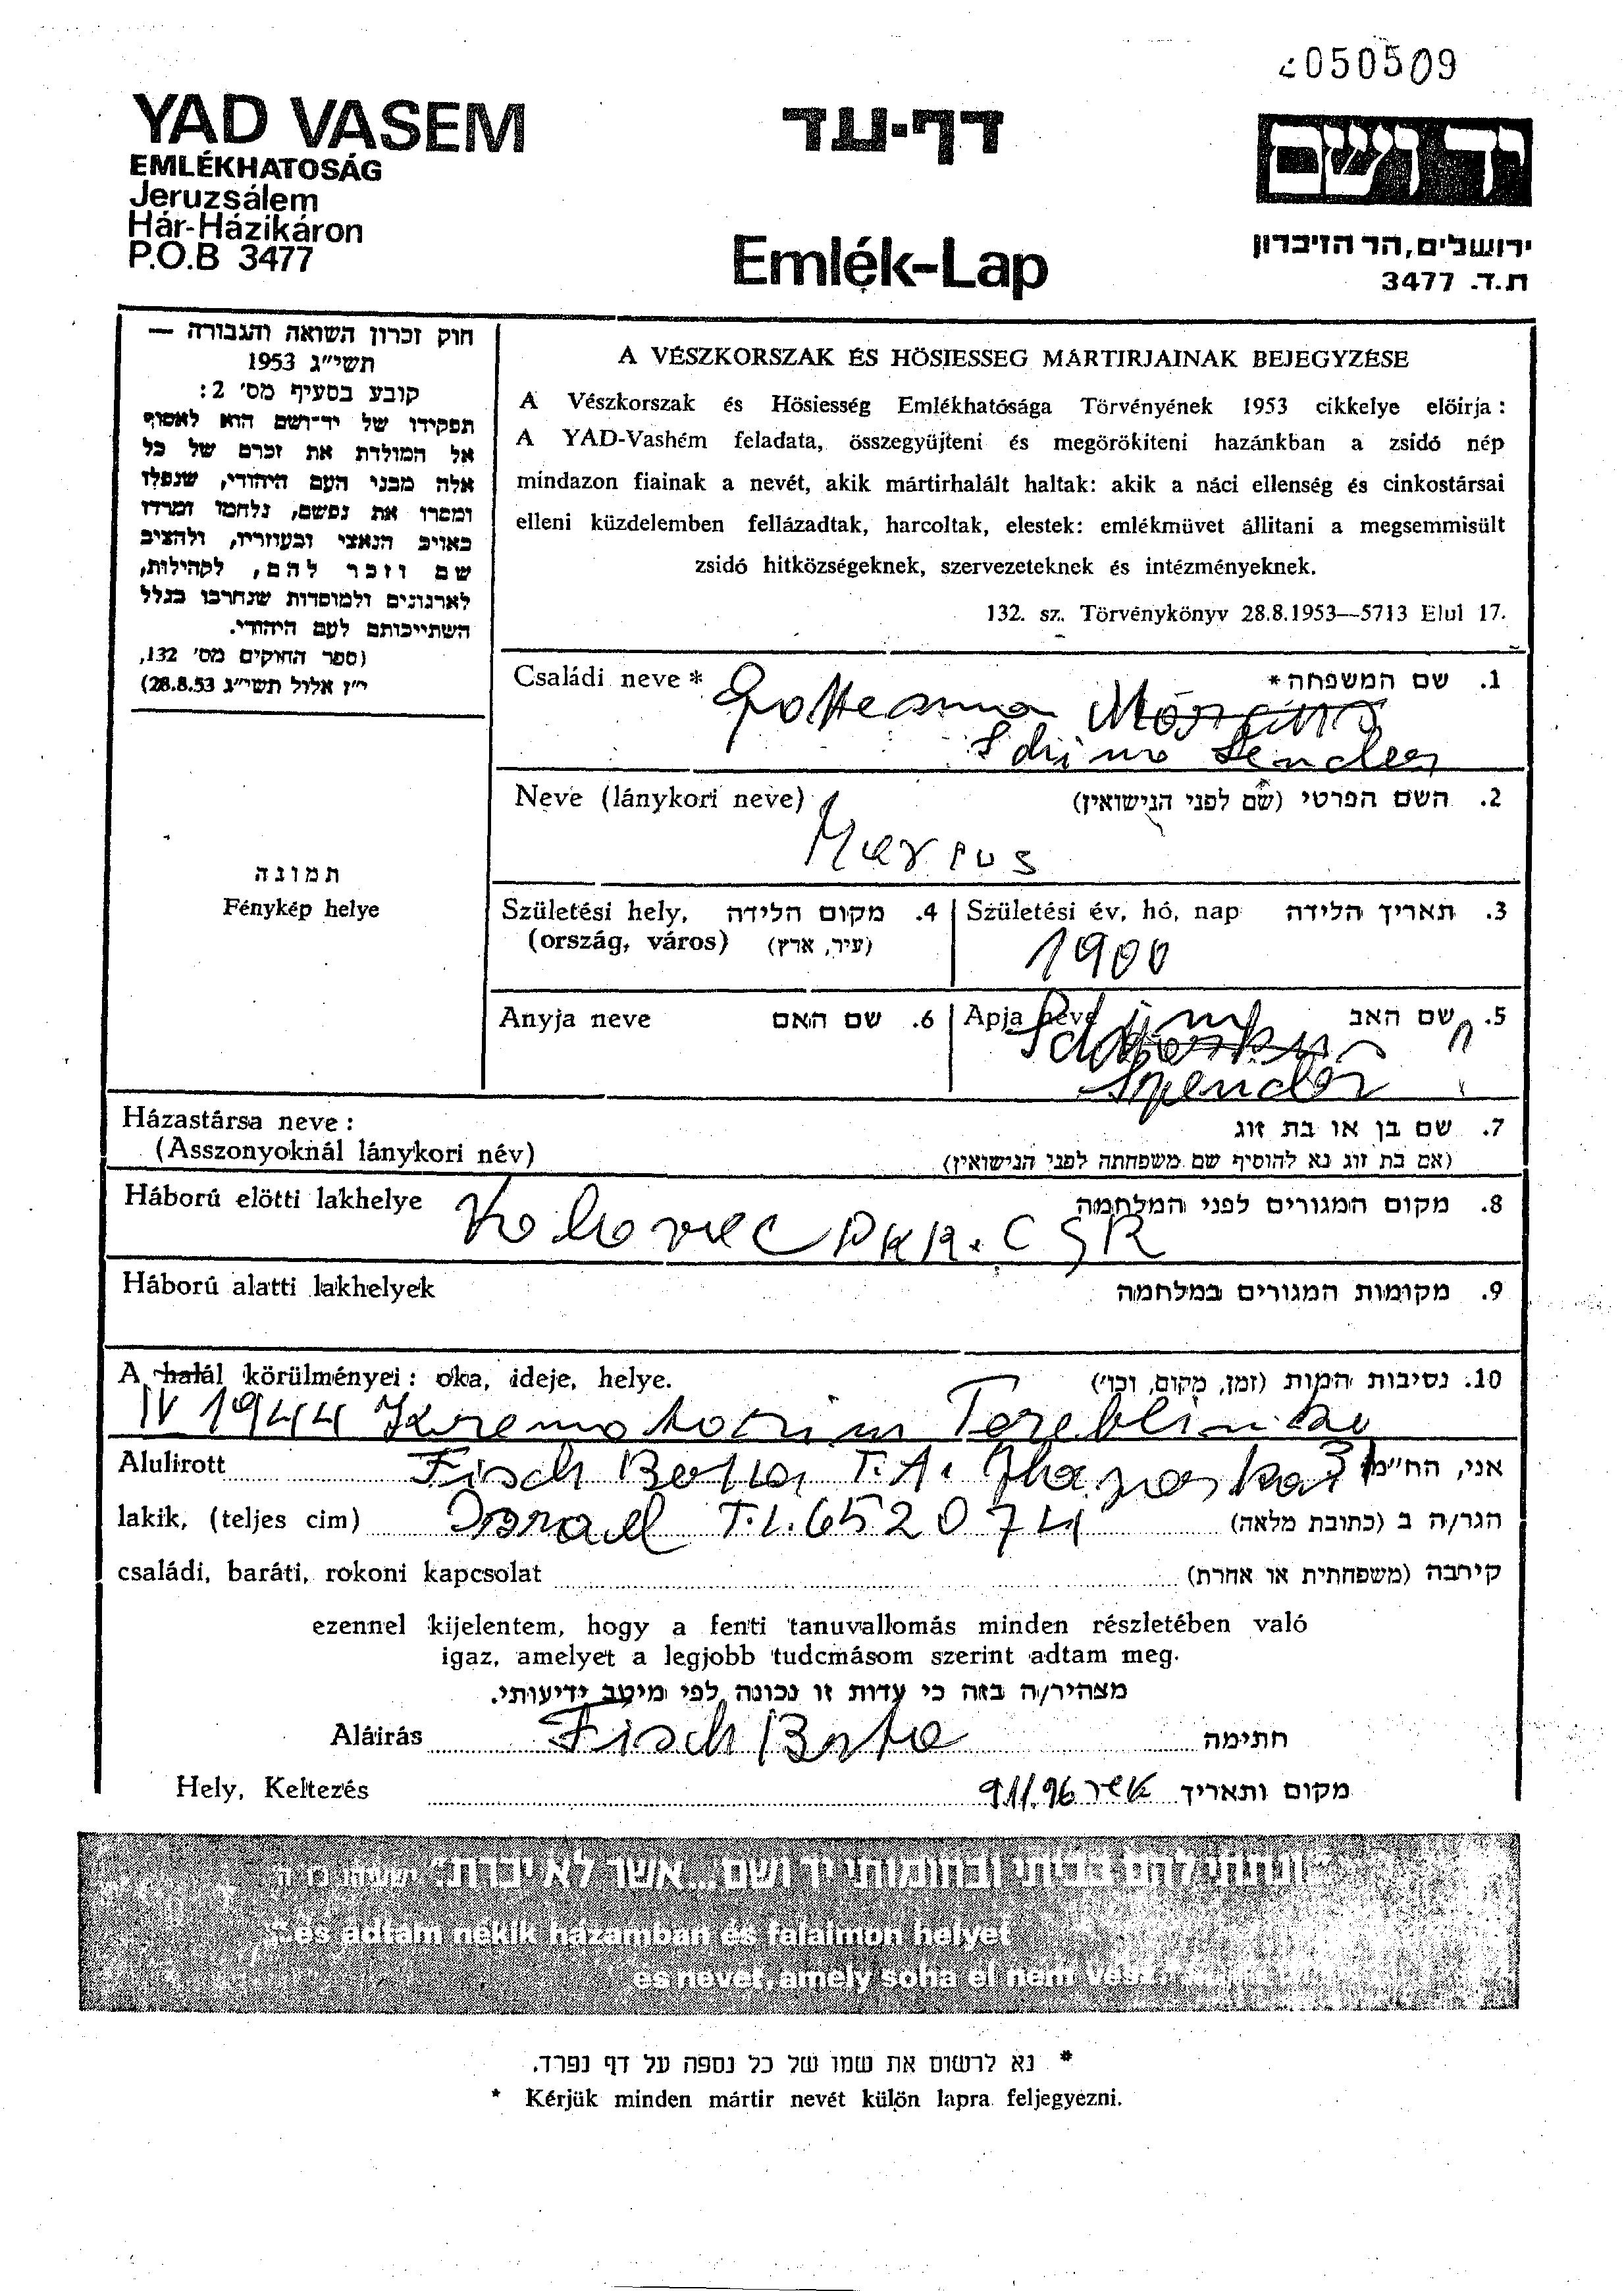 2050509
YAD VASEM
EMLÉKHATOSÁG
Jeruzsálem
Hár-Házikáron
P.O.B 3477
דף-עד
Emlék-Lap
יד ושם
ירושלים, הר הזיכרון
ת.ד. 3477
חוק זכרון השואה והגבורה —
תשי"ג 1953
קובע בסעיף מס' 2:
תפקידו של יד-ושם הוא לאסוף
אל המולדת את זכרם של כל
אלה מבני העם היהודי, שנפלו
ומסרו את נפשם, נלחמו ומרדו
באויב הנאצי ובעוזריו, ולהציב
שם וזכר להם, לקהילות,
לארגונים ולמוסדות שנחרבו בגלל
השתייכותם לעם היהודי.
(ספר החוקים מס' 132,
י"ז אלול תשי"ג 28.8.53)
A VÉSZKORSZAK ÉS HÖSIESSEG MÁRTIRJAINAK BEJEGYZÉSE
A Vészkorszak és Hösiesség Emlékhatósága Törvényének 1953 cikkelye elöirja:
A YAD-Vashém feladata, összegyüjteni és megörökiteni hazánkban a zsidó nép
mindazon fiainak a nevét, akik mártirhalált haltak: akik a náci ellenség és cinkostársai
elleni küzdelemben fellázadtak, harcoltak, elestek: emlékmüvet állitani a megsemmisült
zsidó hitközségeknek, szervezeteknek és intézményeknek.
132. sz. Törvénykönyv 28.8.1953—5713 Elul 17.
Családi neve *
1. שם המשפחה *
Neve (lánykori neve)
2. השם הפרטי (שם לפני הנישואין)
Marcus
תמונה
Fénykép helye
Születési hely, 4. מקום הלידה
(ország, város) (עיר, ארץ)
Születési év, hó, nap 3. תאריך הלידה
1900
Anyja neve 6. שם האם
Apja neve 5. שם האב
Házastársa neve: 7. שם בן או בת זוג
(Asszonyoknál lánykori név) (אם בת זוג נא להוסיף שם משפחתה לפני הנישואין)
Háború elötti lakhelye 8. מקום המגורים לפני המלחמה
CSR
Háború alatti lakhelyek 9. מקומות המגורים במלחמה
A halál körülményei: oka, ideje, helye. 10. נסיבות המות (זמן, מקום, וכו')
IV 1944 Krematorium Tereblinka
Alulirott Fisch Berta T.A. 31 אני, הח"מ
lakik, (teljes cim) Israel T.L. 652074 הגר/ה ב (כתובת מלאה)
családi, baráti, rokoni kapcsolat קירבה (משפחתית או אחרת)
ezennel kijelentem, hogy a fenti tanuvallomás minden részletében való
igaz, amelyet a legjobb tudcmásom szerint adtam meg.
מצהיר/ה בזה כי עדות זו נכונה לפי מיטב ידיעותי.
Aláirás Fisch Berta חתימה
Hely, Keltezés 9.1.96 מקום ותאריך
"ונתתי להם בביתי ובחומותי יד ושם... אשר לא יכרת." ישעיהו נו ה'
"és adtam nekik házamban és falaimon helyet
és nevet, amely soha el nem vész."
* נא לרשום את שמו של כל נספה על דף נפרד.
* Kérjük minden mártir nevét külön lapra feljegyezni.